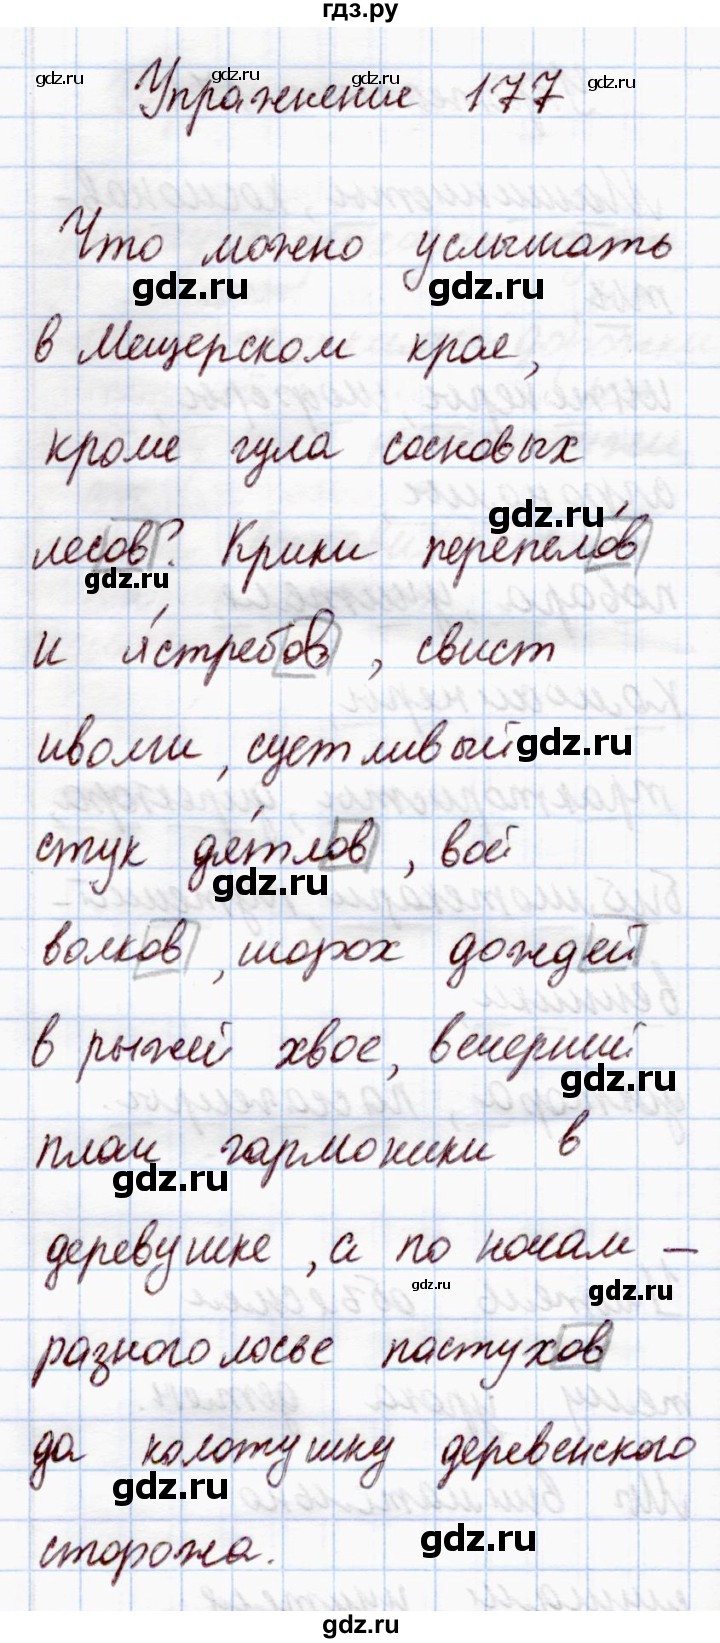 гдз.ру
gdz.ru gdz.ru gdz.ru gdz.ru
Упражнение 177
Что можно услышать
gdz.ru gdz.ru
в Мещерском крае,
кроме гула сосновых
gdz.ru
лесов? Крики перепело́в
gdz.ru
и я́стребов, свист
иволги, суетливый
gdz.ru
стук дя́тлов, вой
gdz.ru
волков, шорох дождей
в рыжей хвое, вечерний
gdz.ru
плач гармоники в
gdz.ru
деревушке, а по ночам —
gdz.ru gdz.ru
разноголосье пастухов
да колотушку деревенского
gdz.ru
сторожа.
gdz.ru
gdz.ru